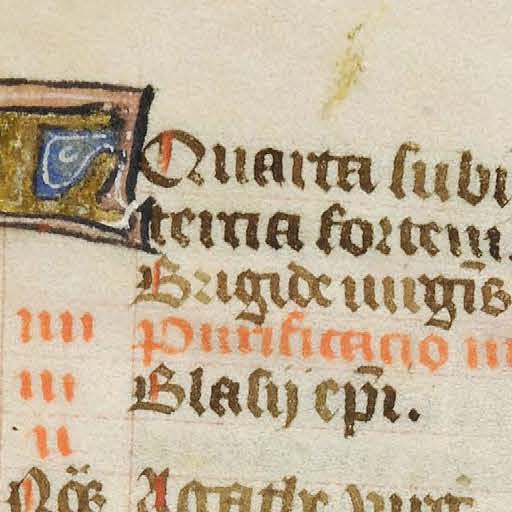 Quarta subi
ternia fortem.
Brigide uirgīs
iiii Purificacio
iii Blasij ep̄i.
ii
Nōs Agathe uirg